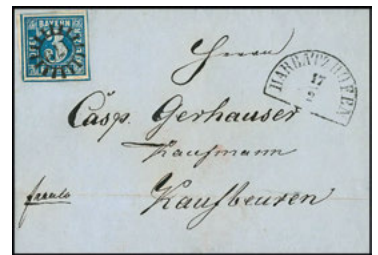 BAYERN
Herrn
HARBATZHOFEN
17
Casp. Gerhauser
Kaufmann
franko
Kaufbeuren